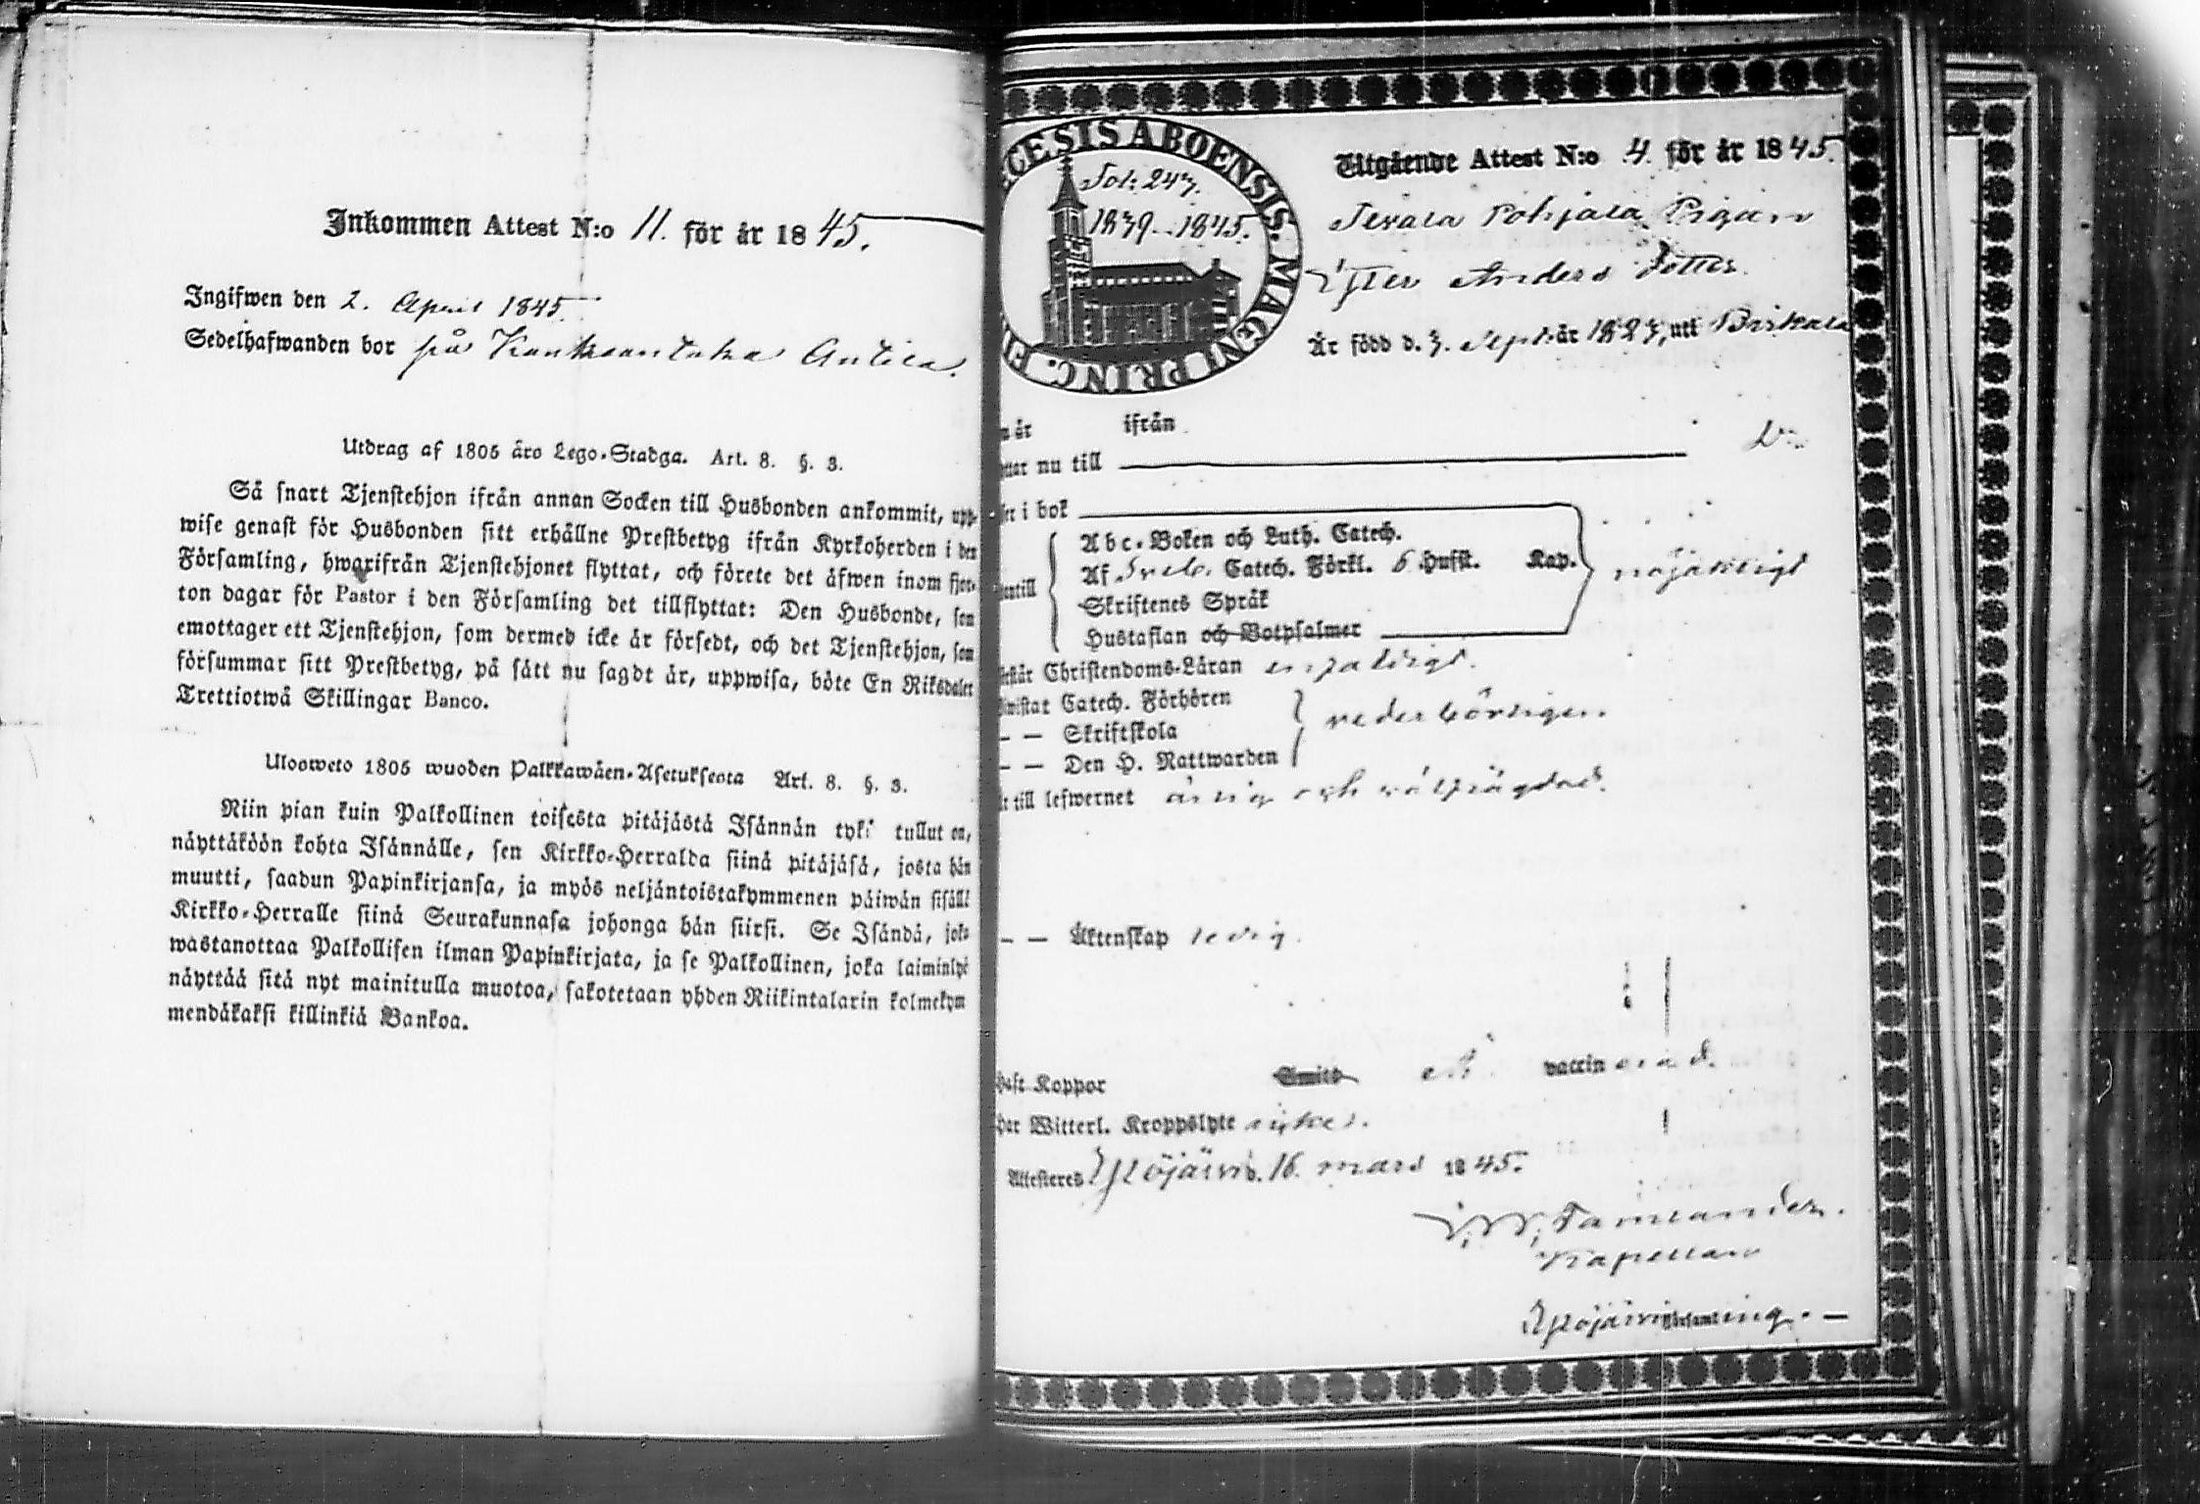 Inkommen Attest N:o 11. för år 1845.
Ingifwen den 2. April 1845.
Sedelhafwanden bor på Kankaantaka Antila.
Utdrag af 1805 års Lego-Stadga. Art. 8. §. 3.
Så snart Tjenstehjon ifrån annan Socken till Husbonden ankommit, upp-
wise genast för Husbonden sitt erhållne Prestbetyg ifrån Kyrkoherden i den
Församling, hwarifrån Tjenstehjonet flyttat, och förete det äfwen inom fjor-
ton dagar för Pastor i den Församling det tillflyttat: Den Husbonde, som
emottager ett Tjenstehjon, som dermed icke är försedt, och det Tjenstehjon, som
försummar sitt Prestbetyg, på sätt nu sagdt är, uppwisa, böte En Riksdaler
Trettiotwå Skillingar Banco.
Ulosweto 1805 wuoden Palkkawäen-Asetuksesta Art. 8. §. 3.
Niin pian kuin Palkollinen toisesta pitäjästä Isännän tykö tullut on,
näyttäköön kohta Isännälle, sen Kirkko-Herralda siinä pitäjäsä, josta hän
muutti, saadun Papinkirjansa, ja myös neljäntoistakymmenen päiwän sisällä
Kirkko-Herralle siinä Seurakunnasa johonga hän siirsi. Se Isändä, joka
wastanottaa Palkollisen ilman Papinkirjata, ja se Palkollinen, joka laiminlyö
näyttää sitä nyt mainitulla muotoa, sakotetaan yhden Riikintalarin kolmekym
mendäkaksi killinkiä Bankoa.
CESIS ABOENSIS. MAGNI PRINC. FI
Fol: 247.
1839–1845.
Utgående Attest N:o 4. för år 1845.
Pohjala Pigan
Anders dotter
Är född d. 3. Sept. år 1827, uti Birkala
n år ifrån
ttar nu till
ser i bok
entill
Abc-Boken och Luth. Catech.
Af Sveb. Catech. Förkl. 6 Hufst. Kap.
Skriftenes Språk
Hustaflan och Botpsalmer
nöjaktligt
rstår Christendoms-Läran enfaldigt.
wistat Catech. Förhören
– – Skriftskola
– – Den H. Nattwarden
vederbörligen.
r till lefwernet ärlig och välfrägdad.
– – Äktenskap ledig.
haft Koppor Smitt vaccinerad.
har Witterl. Kroppslyte
Attesteres Ylöjärvi d. 16. mars 1845.
Tamlander.
Kapellan
Ylöjärvi Församling. –